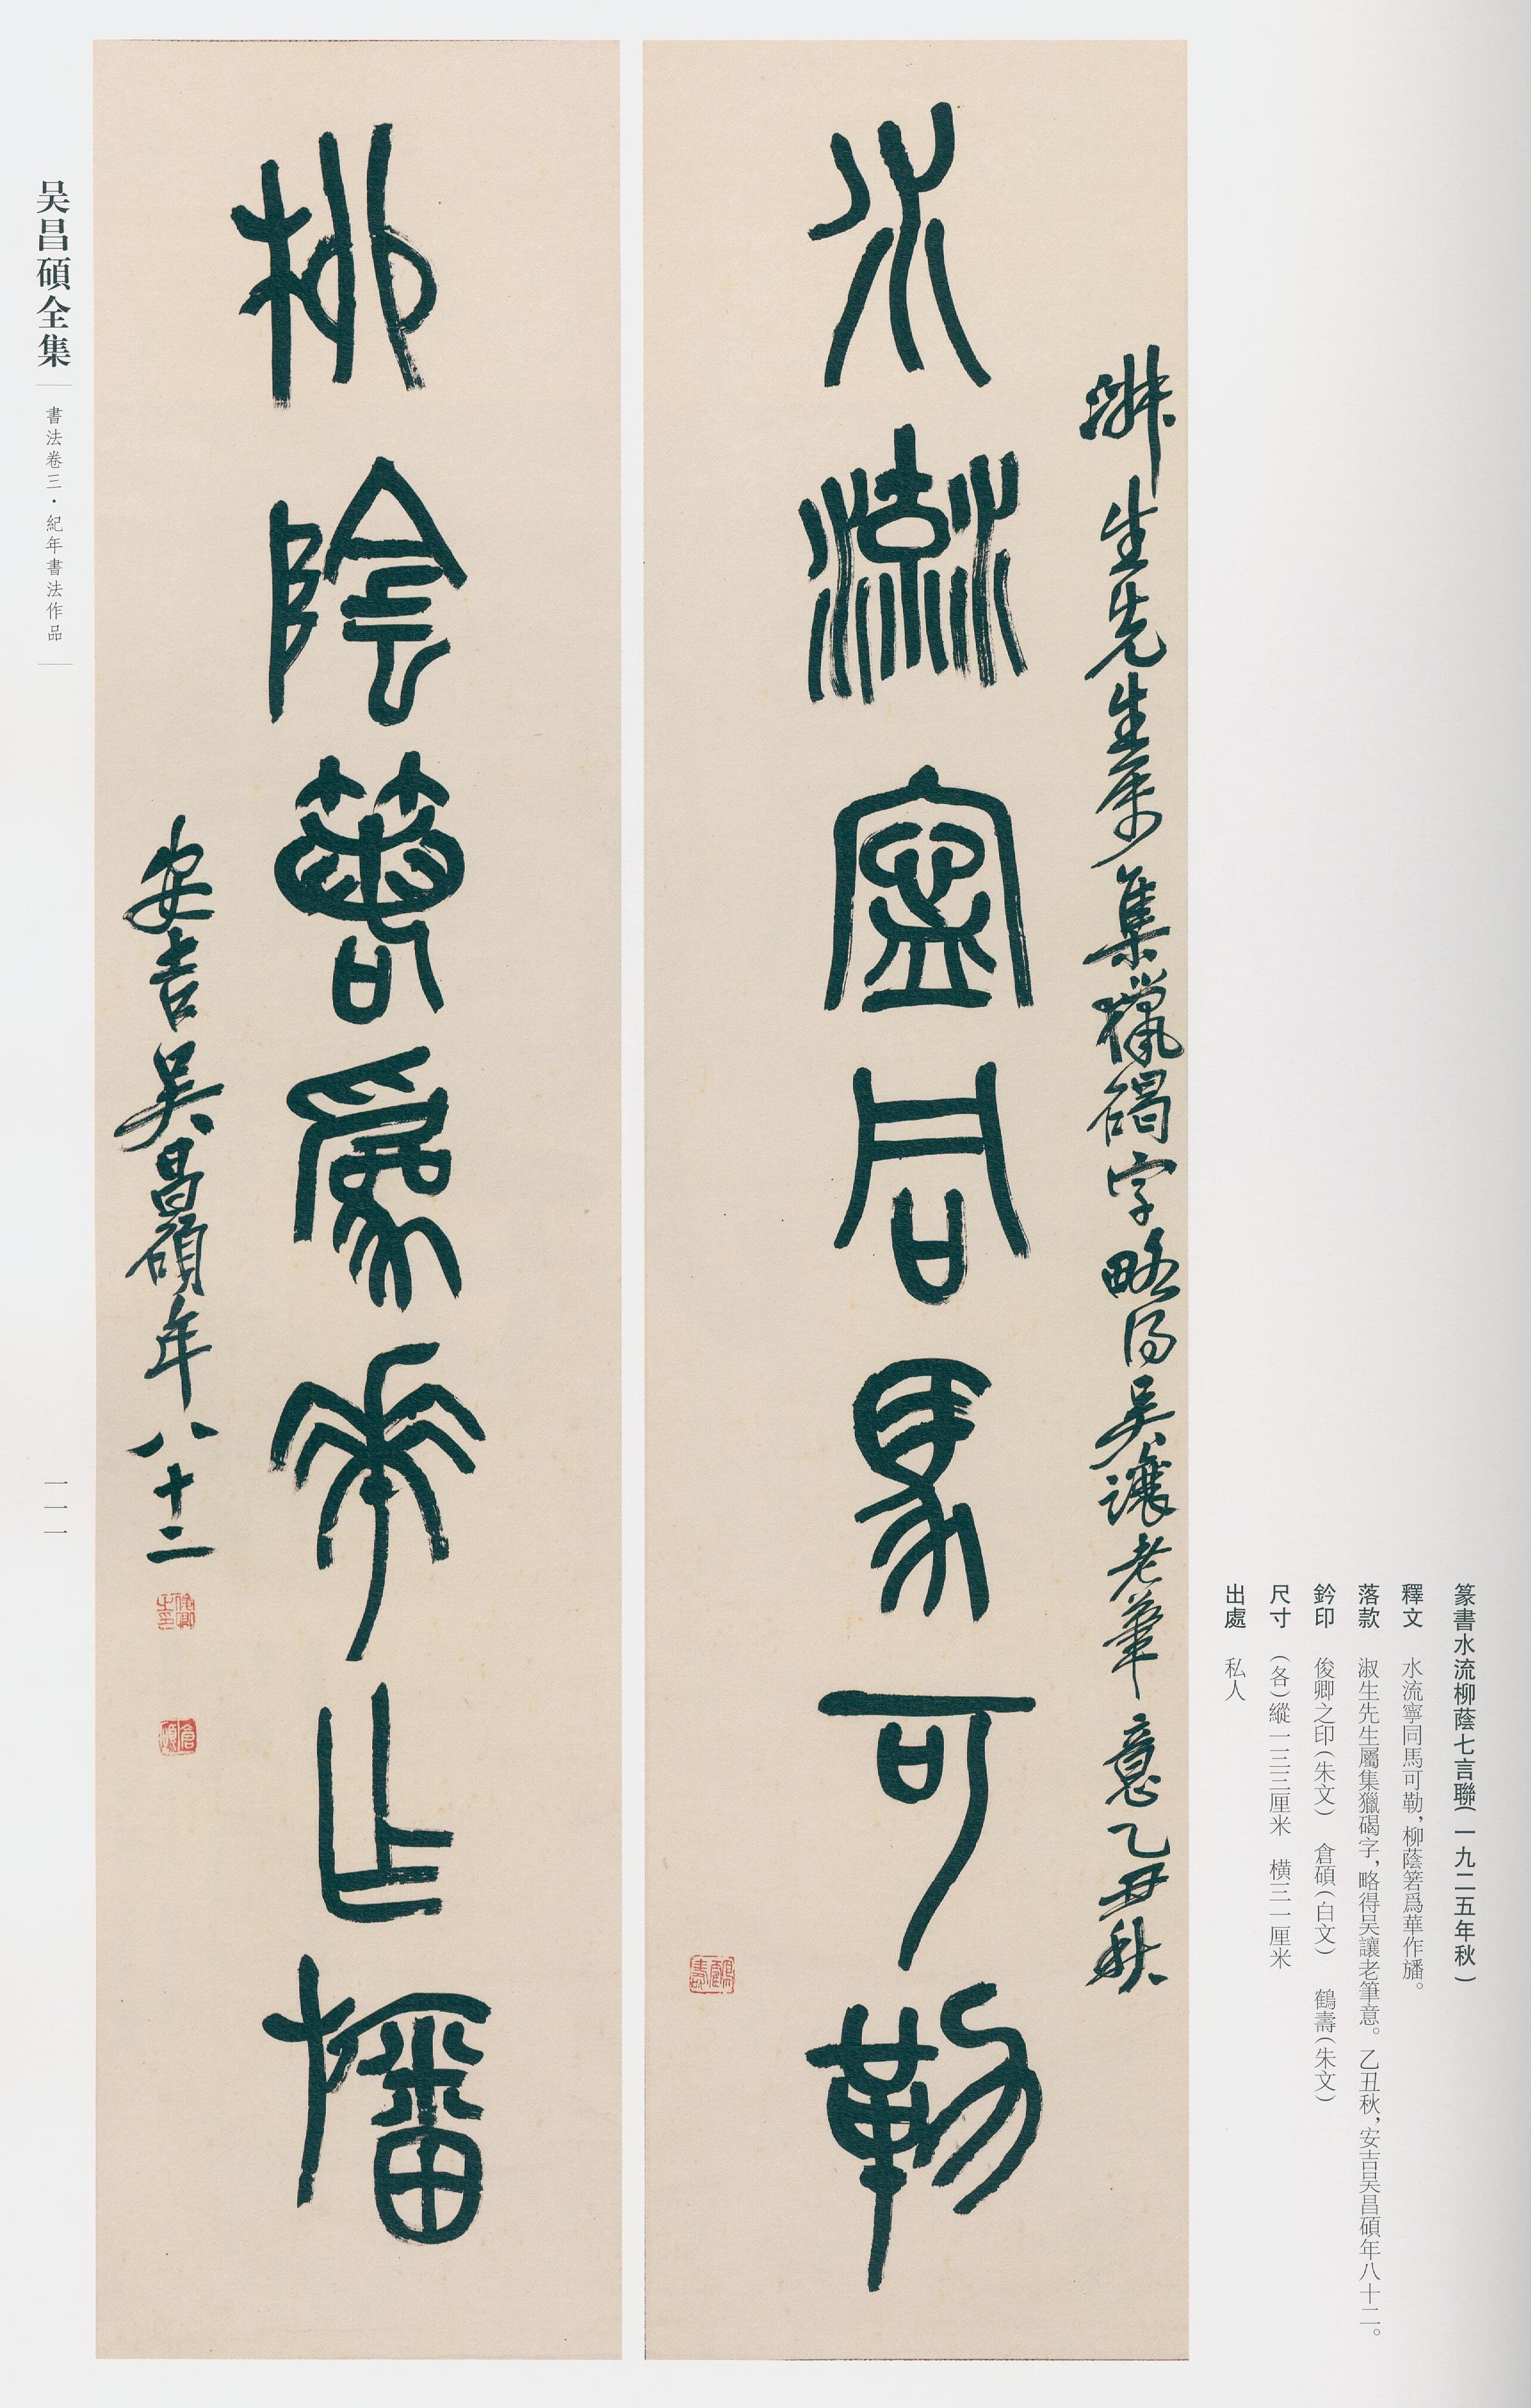 篆書水流柳蔭七言聯（一九二五年秋）
釋文　水流寧同馬可勒，柳蔭箬爲華作旛。
落款　淑生先生屬集獵碣字，略得吴讓老筆意。乙丑秋，安吉吴昌碩年八十二。
鈐印　俊卿之印（朱文）　倉碩（白文）　鶴壽（朱文）
尺寸　（各）縱一三三厘米　横三一厘米
出處　私人
淑生先生屬集獵碣字略得吴讓老筆意乙丑秋
水流寧同馬可勒
鶴壽
柳陰箬爲華作旛
安吉吴昌碩年八十二
俊卿之印
倉碩
吴昌碩全集
書法卷三·紀年書法作品
一一一